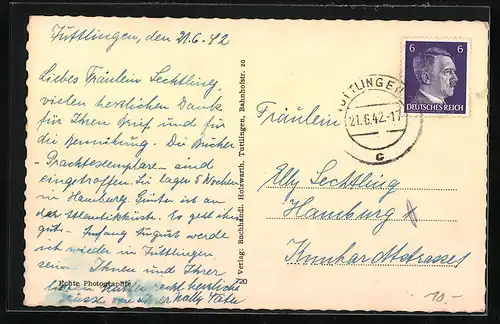 Tuttlingen, den 21.6.42
Liebes Fräulein Lechtling,
vielen herzlichen Dank
für Ihren Brief und für
die Bemühung. Die Bücher
- Prachtexemplare - sind
eingetroffen. Sie lagen 5 Wochen
in Hamburg. Günter ist an
der Atlantikküste. Es geht ihm
gut. - Anfang August werde
ich wieder in Tuttlingen
sein. Ihnen und Ihrer
lieben recht herzliche
Grüsse von Ihrer
Echte Photographie
720
Verlag: Buchhandl. Holzwarth, Tuttlingen, Bahnhofstr. 20
TUTTLINGEN
21.6.42.-17
c
6 6
DEUTSCHES REICH
Fräulein
Elly Lechtling
Hamburg
10.-